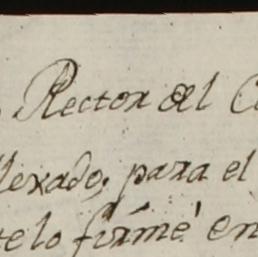 Rector del C
lexado, para el
te lo firmé en